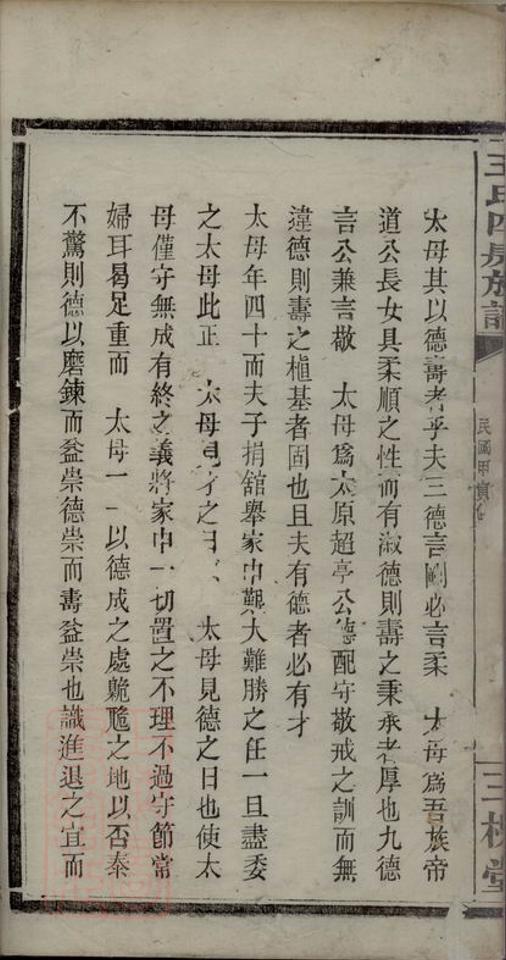 王氏四房族譜
民國甲寅
三槐堂
太母其以德壽者乎夫三德言剛必言柔　太母爲吾族帝
道公長女具柔順之性而有淑德則壽之秉承者厚也九德
言公兼言敬　太母爲太原超亭公德配守敬戒之訓而無
違德則壽之植基者固也且夫有德者必有才
太母年四十而夫子捐舘舉家中艱大難勝之任一旦盡委
之太母此正　太母見才之日　太母見德之日也使太
母僅守無成有終之義將家中一切置之不理不過守節常
婦耳曷足重而　太母一一以德成之處臲卼之地以否泰
不驚則德以磨鍊而益崇德崇而壽益崇也識進退之宜而